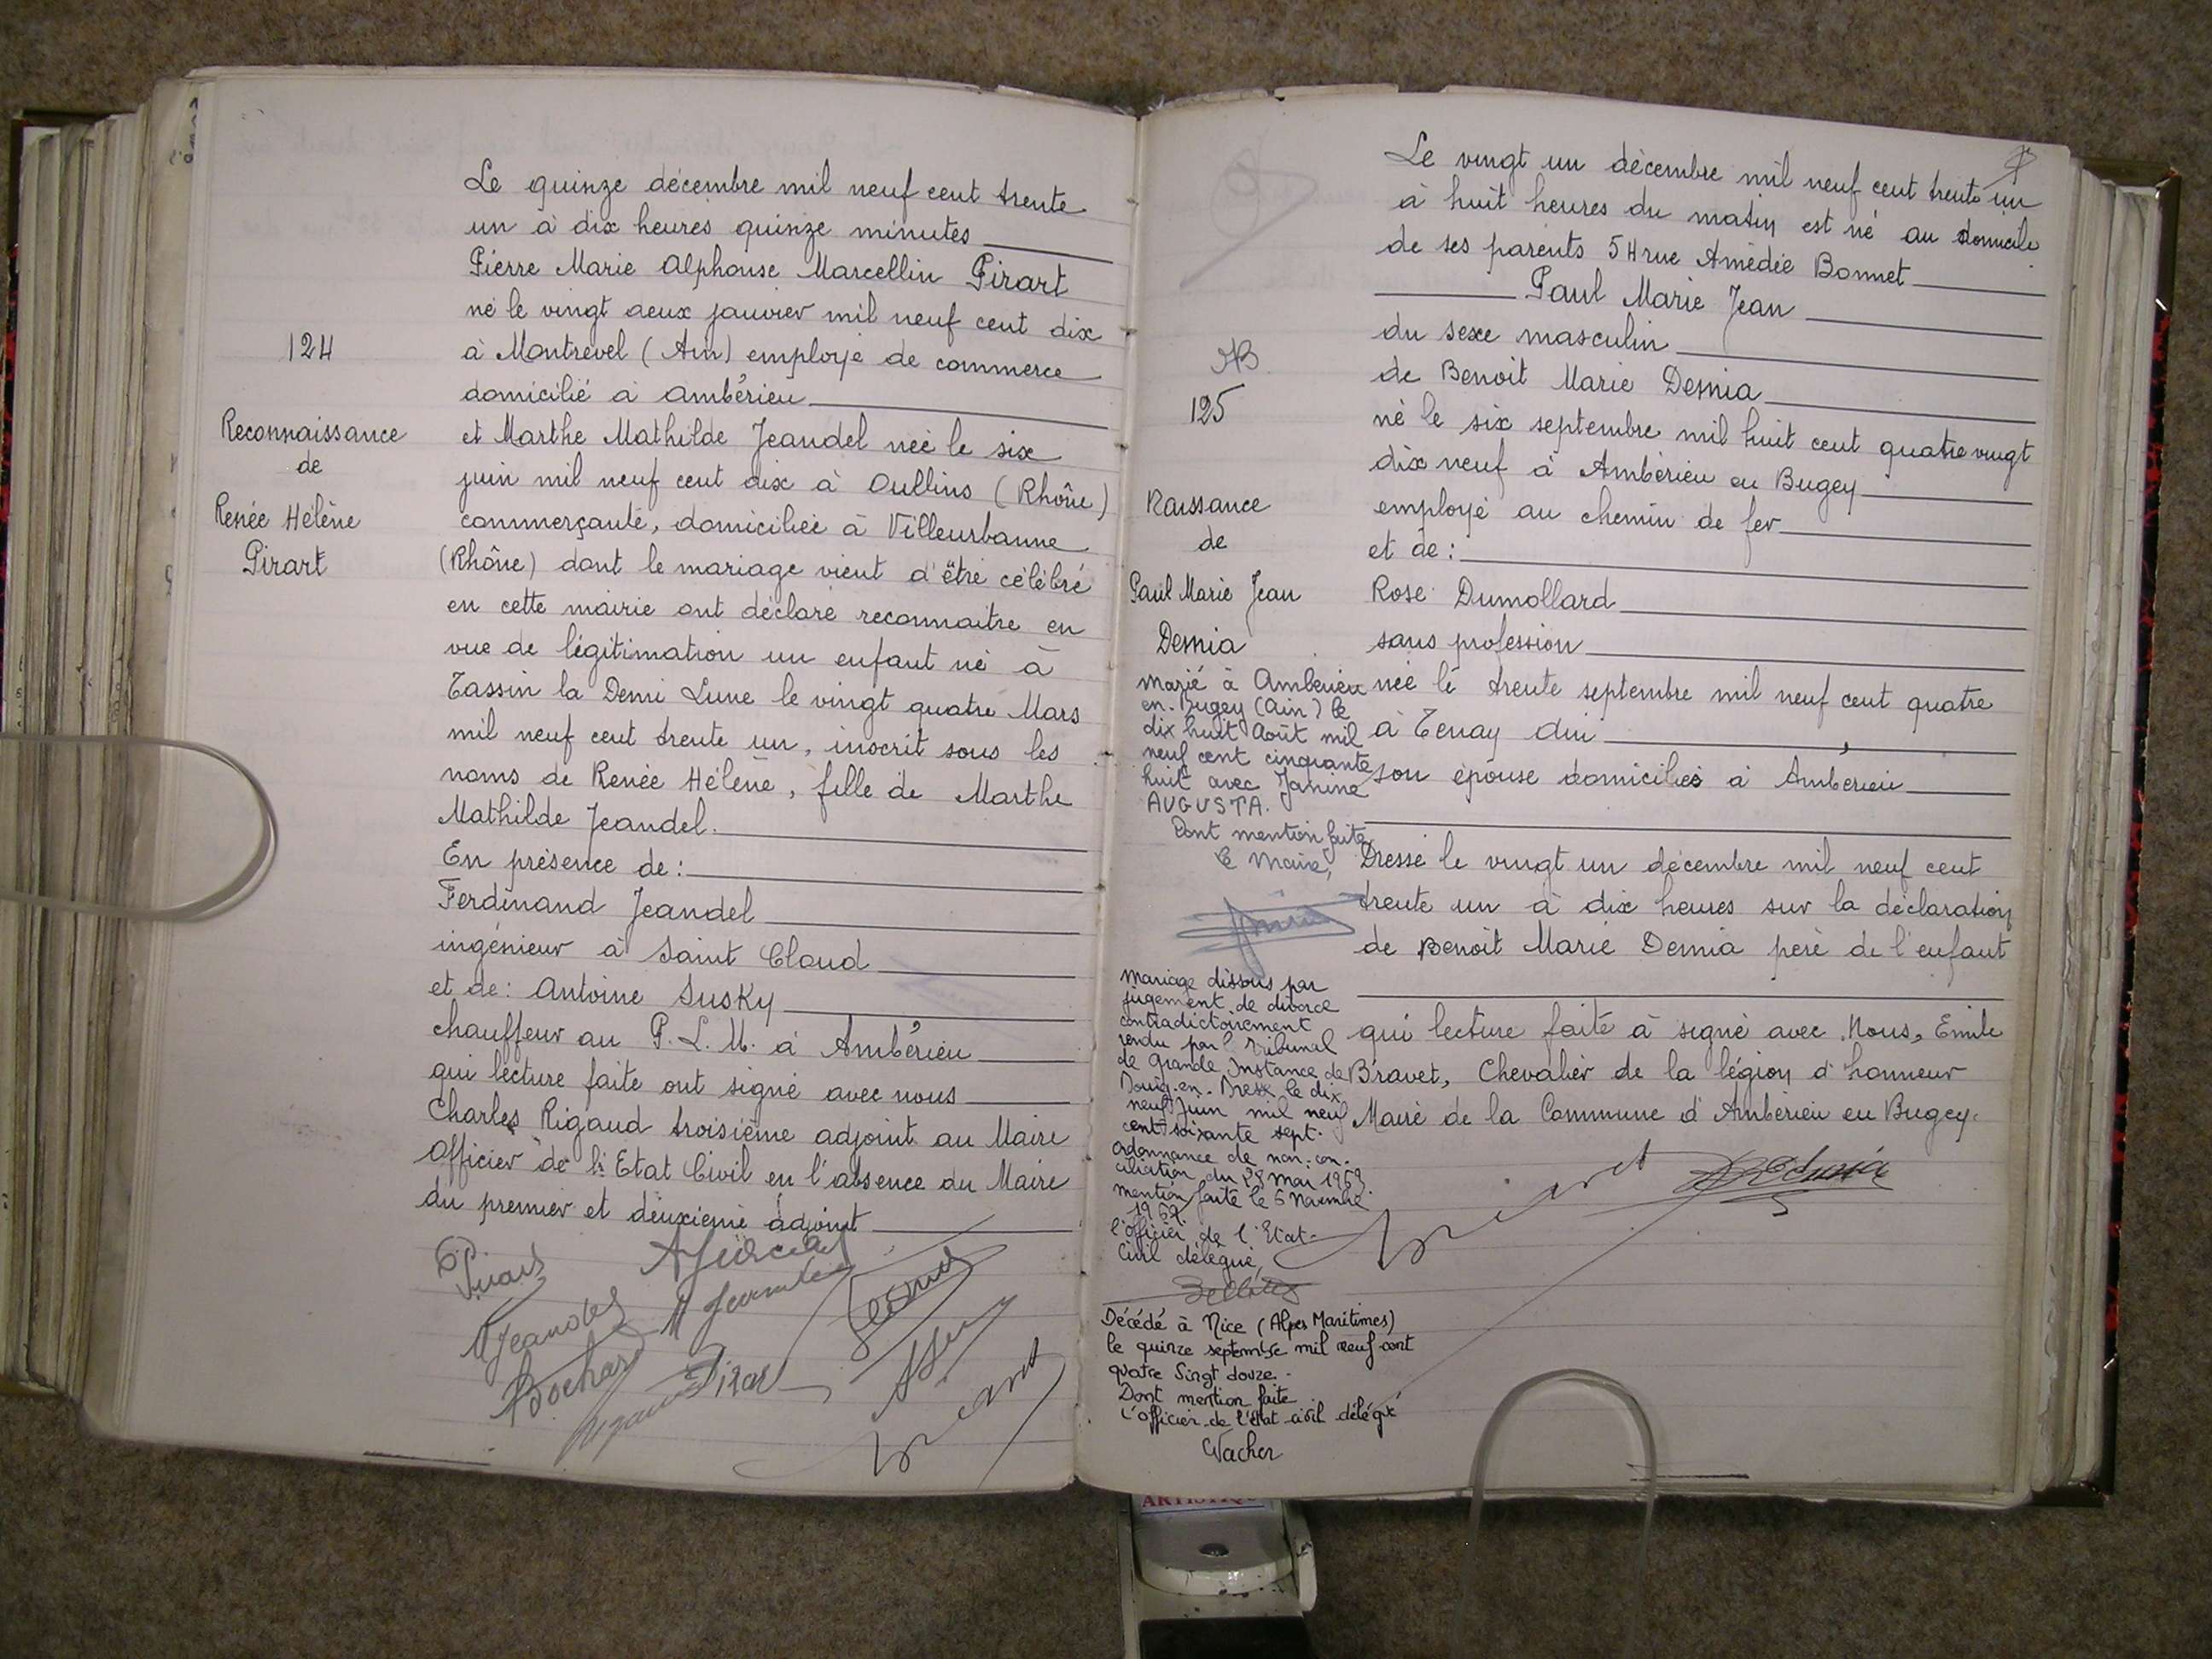 124
Reconnaissance
de
Renée Hélène
Pirart
Le quinze décembre mil neuf cent trente
un à dix heures quinze minutes
Pierre Marie Alphonse Marcellin Pirart
né le vingt deux janvier mil neuf cent dix
à Montrevel (Ain) employé de commerce
domicilié à Ambérieu
et Marthe Mathilde Jeandel née le six
juin mil neuf cent dix à Oullins (Rhône)
commerçante, domiciliée à Villeurbanne
(Rhône) dont le mariage vient d'être célébré
en cette mairie ont déclaré reconnaitre en
vue de légitimation un enfant né à
Tassin la Demi Lune le vingt quatre Mars
mil neuf cent trente un, inscrit sous les
noms de Renée Hélène, fille de Marthe
Mathilde Jeandel.
En présence de :
Ferdinand Jeandel
ingénieur à Saint Cloud
et de : Antoine Susky
chauffeur au P.L.M. à Ambérieu
qui lecture faite ont signé avec nous
Charles Rigaud troisième adjoint au Maire
Officier de l'Etat Civil en l'absence du Maire
du premier et deuxième adjoint
Pirart
MJeandel
Bochard
Pirart
125
Naissance
de
Paul Marie Jean
Demia
Marié à Ambérieu
en-Bugey (Ain) le
dix huit Août mil
neuf cent cinquante
huit avec Janine
AUGUSTA.
Dont mention faite
Le Maire,
Mariage dissous par
jugement de divorce
contradictoirement
rendu par le Tribunal
de Grande Instance de
Bourg-en-Bresse le dix
neuf Juin mil neuf
cent soixante sept.
Ordonnance de non-con-
ciliation du 28 Mai 1963.
Mention faite le 6 Novembre
1967.
l'officier de l'Etat-
Civil délégué,
Décédé à Nice (Alpes Maritimes)
le quinze septembre mil neuf cent
quatre vingt douze.
Dont mention faite
L'officier de l'état civil délégué
Vacher
Le vingt un décembre mil neuf cent trente un
à huit heures du matin est né au domicile
de ses parents 54 rue Amédée Bonnet
Paul Marie Jean
du sexe masculin
de Benoit Marie Demia
né le six septembre mil huit cent quatre vingt
dix neuf à Ambérieu en Bugey
employé au chemin de fer
et de :
Rose Dumollard
sans profession
née le trente septembre mil neuf cent quatre
à Tenay Ain
son épouse domiciliés à Ambérieu
Dressé le vingt un décembre mil neuf cent
trente un à dix heures sur la déclaration
de Benoit Marie Demia père de l'enfant
qui lecture faite à signé avec Nous, Emile
Bravet, Chevalier de la légion d'honneur
Maire de la Commune d'Ambérieu en Bugey.
Bravet